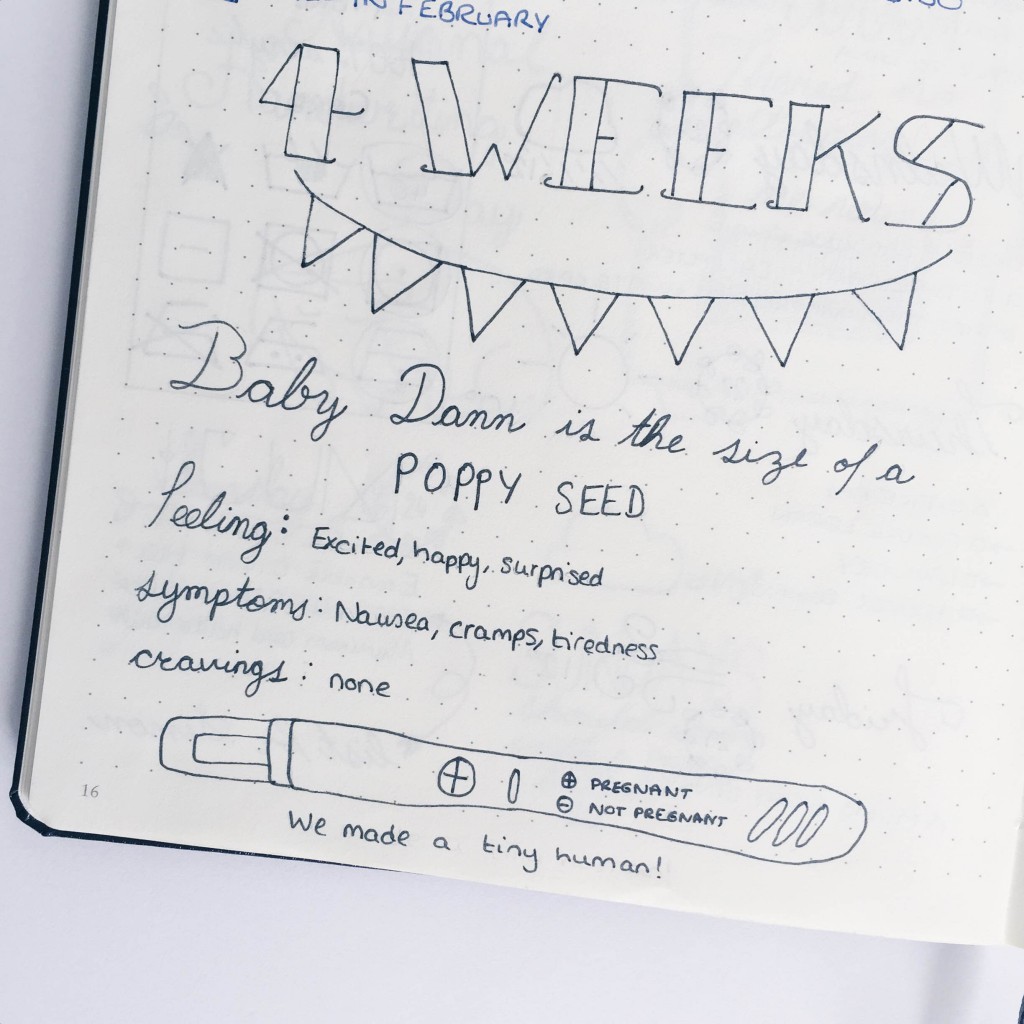 IN FEBRUARY
4 WEEKS
Baby Dann is the size of a
POPPY SEED
Feeling: Excited, happy, surprised
symptoms: Nausea, cramps, tiredness
cravings: none
⊕ PREGNANT
⊖ NOT PREGNANT
16
We made a tiny human!